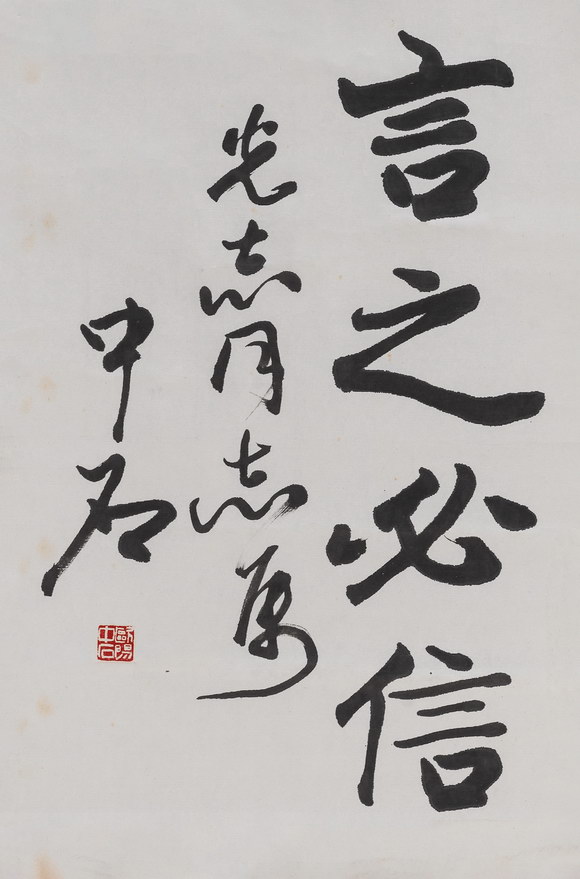 言之必信
光志同志属
中石
欧陽中石